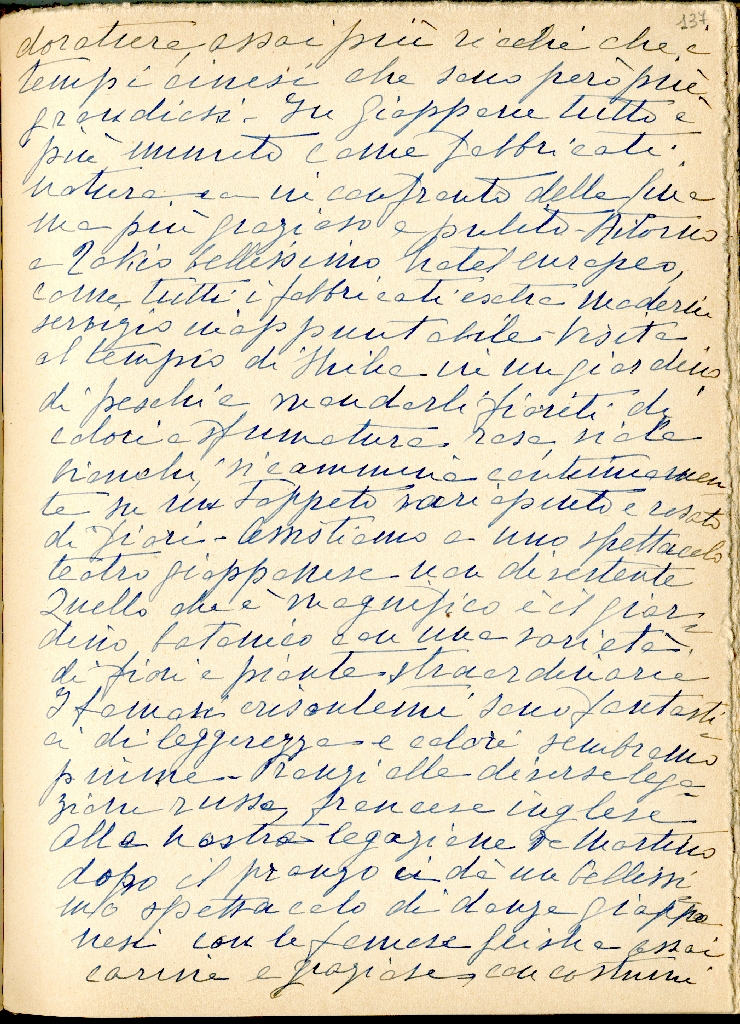 137
dorature, assai più ricchi che i
tempi cinesi che sono però più
grandiosi - In Giappone tutto è
più minuto come fabbricati.
natura in confronto della Cina
ma più grazioso e pulito - Ritorno
a Tokio bellissimo hotel europeo,
come tutti i fabbricati extra moderni
servizio inappuntabile - Visita
al tempio di Shiba in un giardino
di peschi e mandorli fioriti di
colori e sfumature rosa, viola
bianchi, si cammina continuamen
te su un tappeto variopinto e rosato
di fiori - Assistiamo a uno spettacolo
teatro giapponese non divertente
Quello che è magnifico è il giar=
dino botanico con una varietà
di fiori e piante straordinarie
I famosi crisantemi sono fantasti=
ci di leggerezza e colori sembrano
piume - Pranzi alle diverse lega=
zioni russa, francese inglese
Alla nostra legazione De Martino
dopo il pranzo ci dà un bellissi
mo spettacolo di danze giappo
nesi con le famose geisha assai
carine e graziose, con costumi